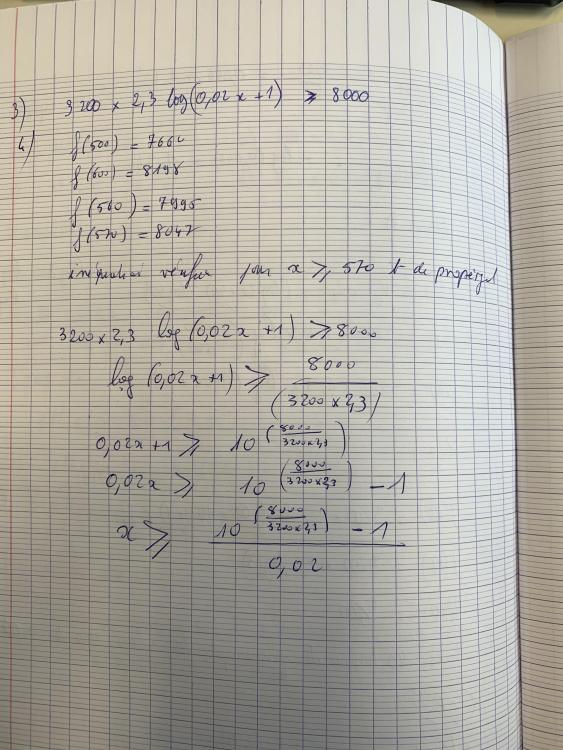 3) 3200 x 2,3 log(0,02x + 1) ⩾ 8000
4) f(500) = 766
f(600) = 8198
f(560) = 7995
f(570) = 8047
vérifiée pour x ⩾ 570 t de propergol
3200 x 2,3 log(0,02x + 1) ⩾ 8000
log (0,02x + 1) ⩾ 8000 / (3200 x 2,3)
0,02x + 1 ⩾ 10^(8000 / 3200 x 2,3)
0,02x ⩾ 10^(8000 / 3200 x 2,3) - 1
x ⩾ (10^(8000 / 3200 x 2,3) - 1) / 0,02